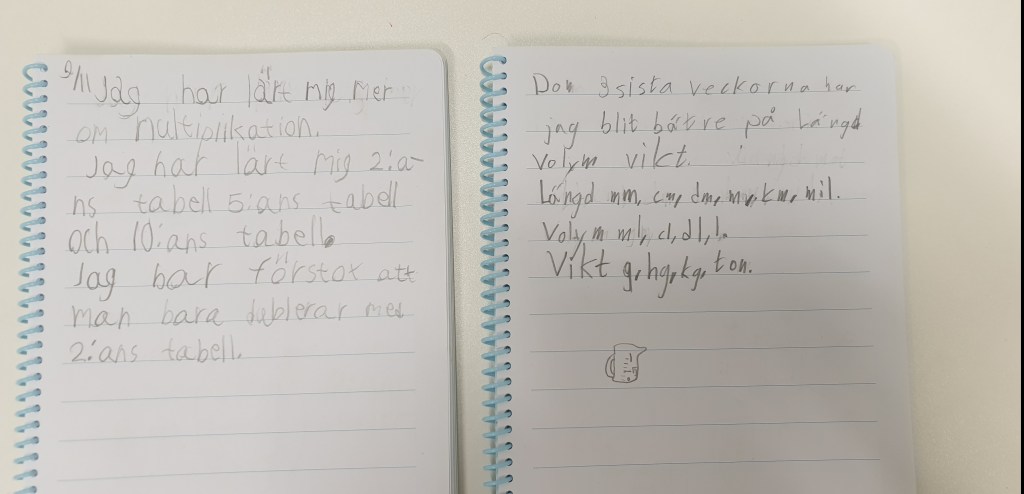 9/11 Jag har lärt mig mer
om multiplikation.
Jag har lärt mig 2:a-
ns tabell 5:ans tabell
och 10:ans tabell.
Jag har förstot att
man bara dublerar med
2:ans tabell.
Dom 3 sista veckorna har
jag blit bätre på Längd
Volym vikt.
Längd mm, cm, dm, m, km, mil.
Volym ml, cl, dl, l.
Vikt g, hg, kg, ton.